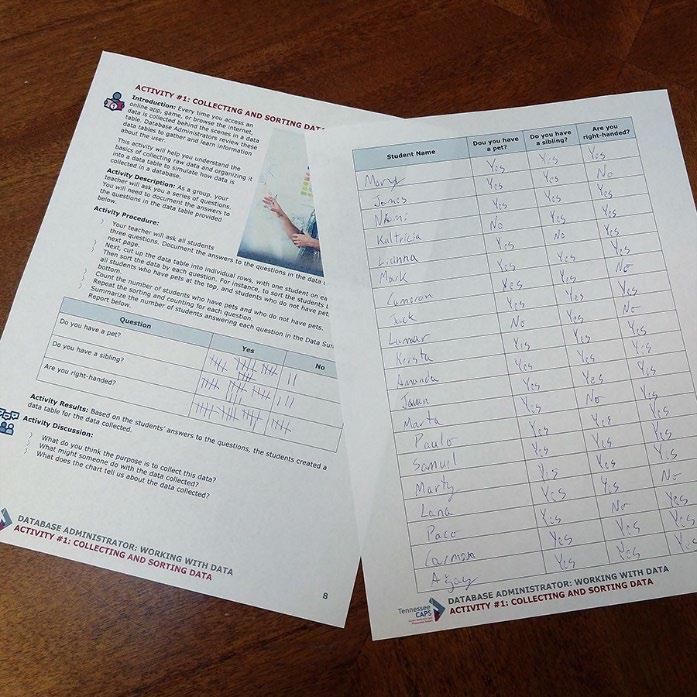 ACTIVITY #1: COLLECTING AND SORTING DAT
Introduction: Every time you access an
online app, game, or browse the internet,
data is collected behind the scenes in a data
table. Database Administrators review these
data tables to gather and learn information
about the user.
This activity will help you understand the
basics of collecting raw data and organizing it
into a data table to simulate how data is
collected in a database.
Activity Description: As a group, your
teacher will ask you a series of questions.
You will need to document the answers to
the questions in the data table provided
below.
Activity Procedure:
Your teacher will ask all students
three questions. Document the answers to the questions in the data
next page.
Next, cut up the data table into individual rows, with one student on
Then sort the data by each question. For instance, to sort the students
all students who have pets at the top, and students who do not have pet
bottom.
Count the number of students who have pets and who do not have pets.
Repeat the sorting and counting for each question.
Summarize the number of students answering each question in the Data Sum
Report below.
Question Yes No
Do you have a pet?
Do you have a sibling?
Are you right-handed?
Activity Results: Based on the students' answers to the questions, the students created a
data table for the data collected.
Activity Discussion:
What do you think the purpose is to collect this data?
What might someone do with the data collected?
What does the chart tell us about the data collected?
DATABASE ADMINISTRATOR: WORKING WITH DATA
ACTIVITY #1: COLLECTING AND SORTING DATA
8
Student Name Dou you have a pet? Do you have a sibling? Are you right-handed?
Mary Yes Yes Yes
James Yes Yes No
Naomi Yes Yes Yes
Kaltricia No Yes Yes
Lianna Yes No Yes
Mark Yes Yes Yes
Cameron Yes Yes No
Jack Yes Yes Yes
Lamar No Yes No
Krista Yes Yes Yes
Amanda Yes Yes Yes
Javen Yes Yes Yes
Marta Yes No Yes
Paulo Yes Yes Yes
Samuel Yes Yes Yes
Marty Yes Yes Yes
Lana Yes Yes No
Paco Yes No Yes
Carmen Yes Yes Yes
Ajay Yes Yes Yes
Tennessee
CAPS
DATABASE ADMINISTRATOR: WORKING WITH DATA
ACTIVITY #1: COLLECTING AND SORTING DATA